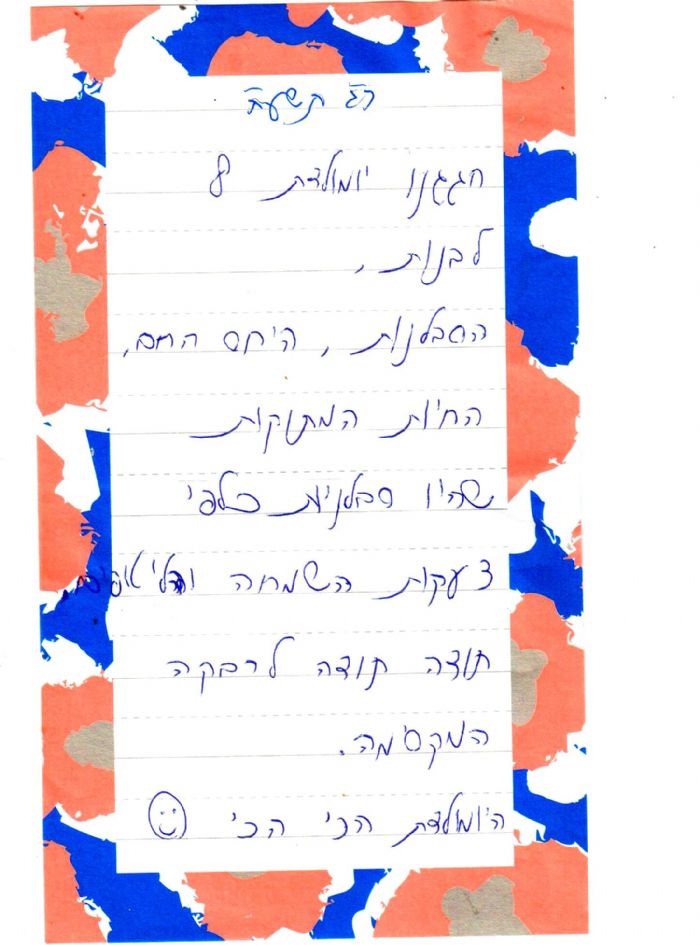 תשע"ח
חגגנו יומולדת 8
לבנות,
הסבלנות, היחס החם,
החיות המתוקות
שהיו סבלניות כלפי
צעקות השמחה והליטופים.
תודה תודה לרבקה
המקסימה.
היומולדת הכי הכי